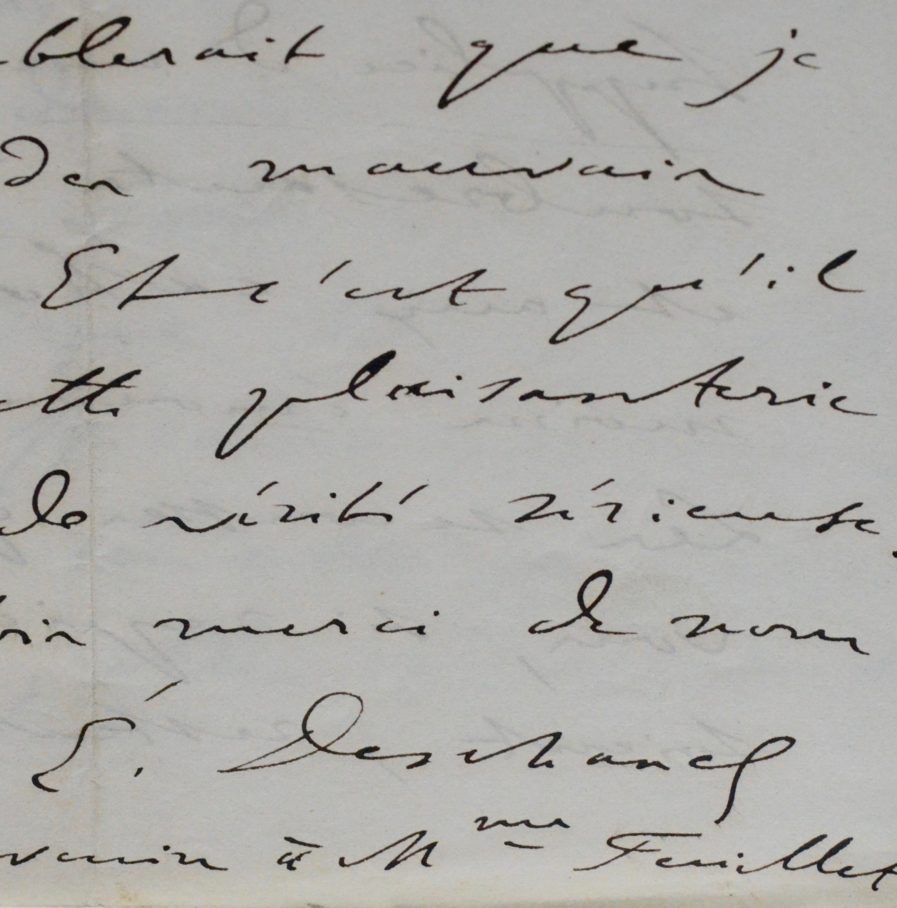 blerait que je
des mauvais
Et c'est qu'il
ette plaisanterie
de vérité sérieuse.
merci de nous
É. Deschanel
venir à Mme Feuillet